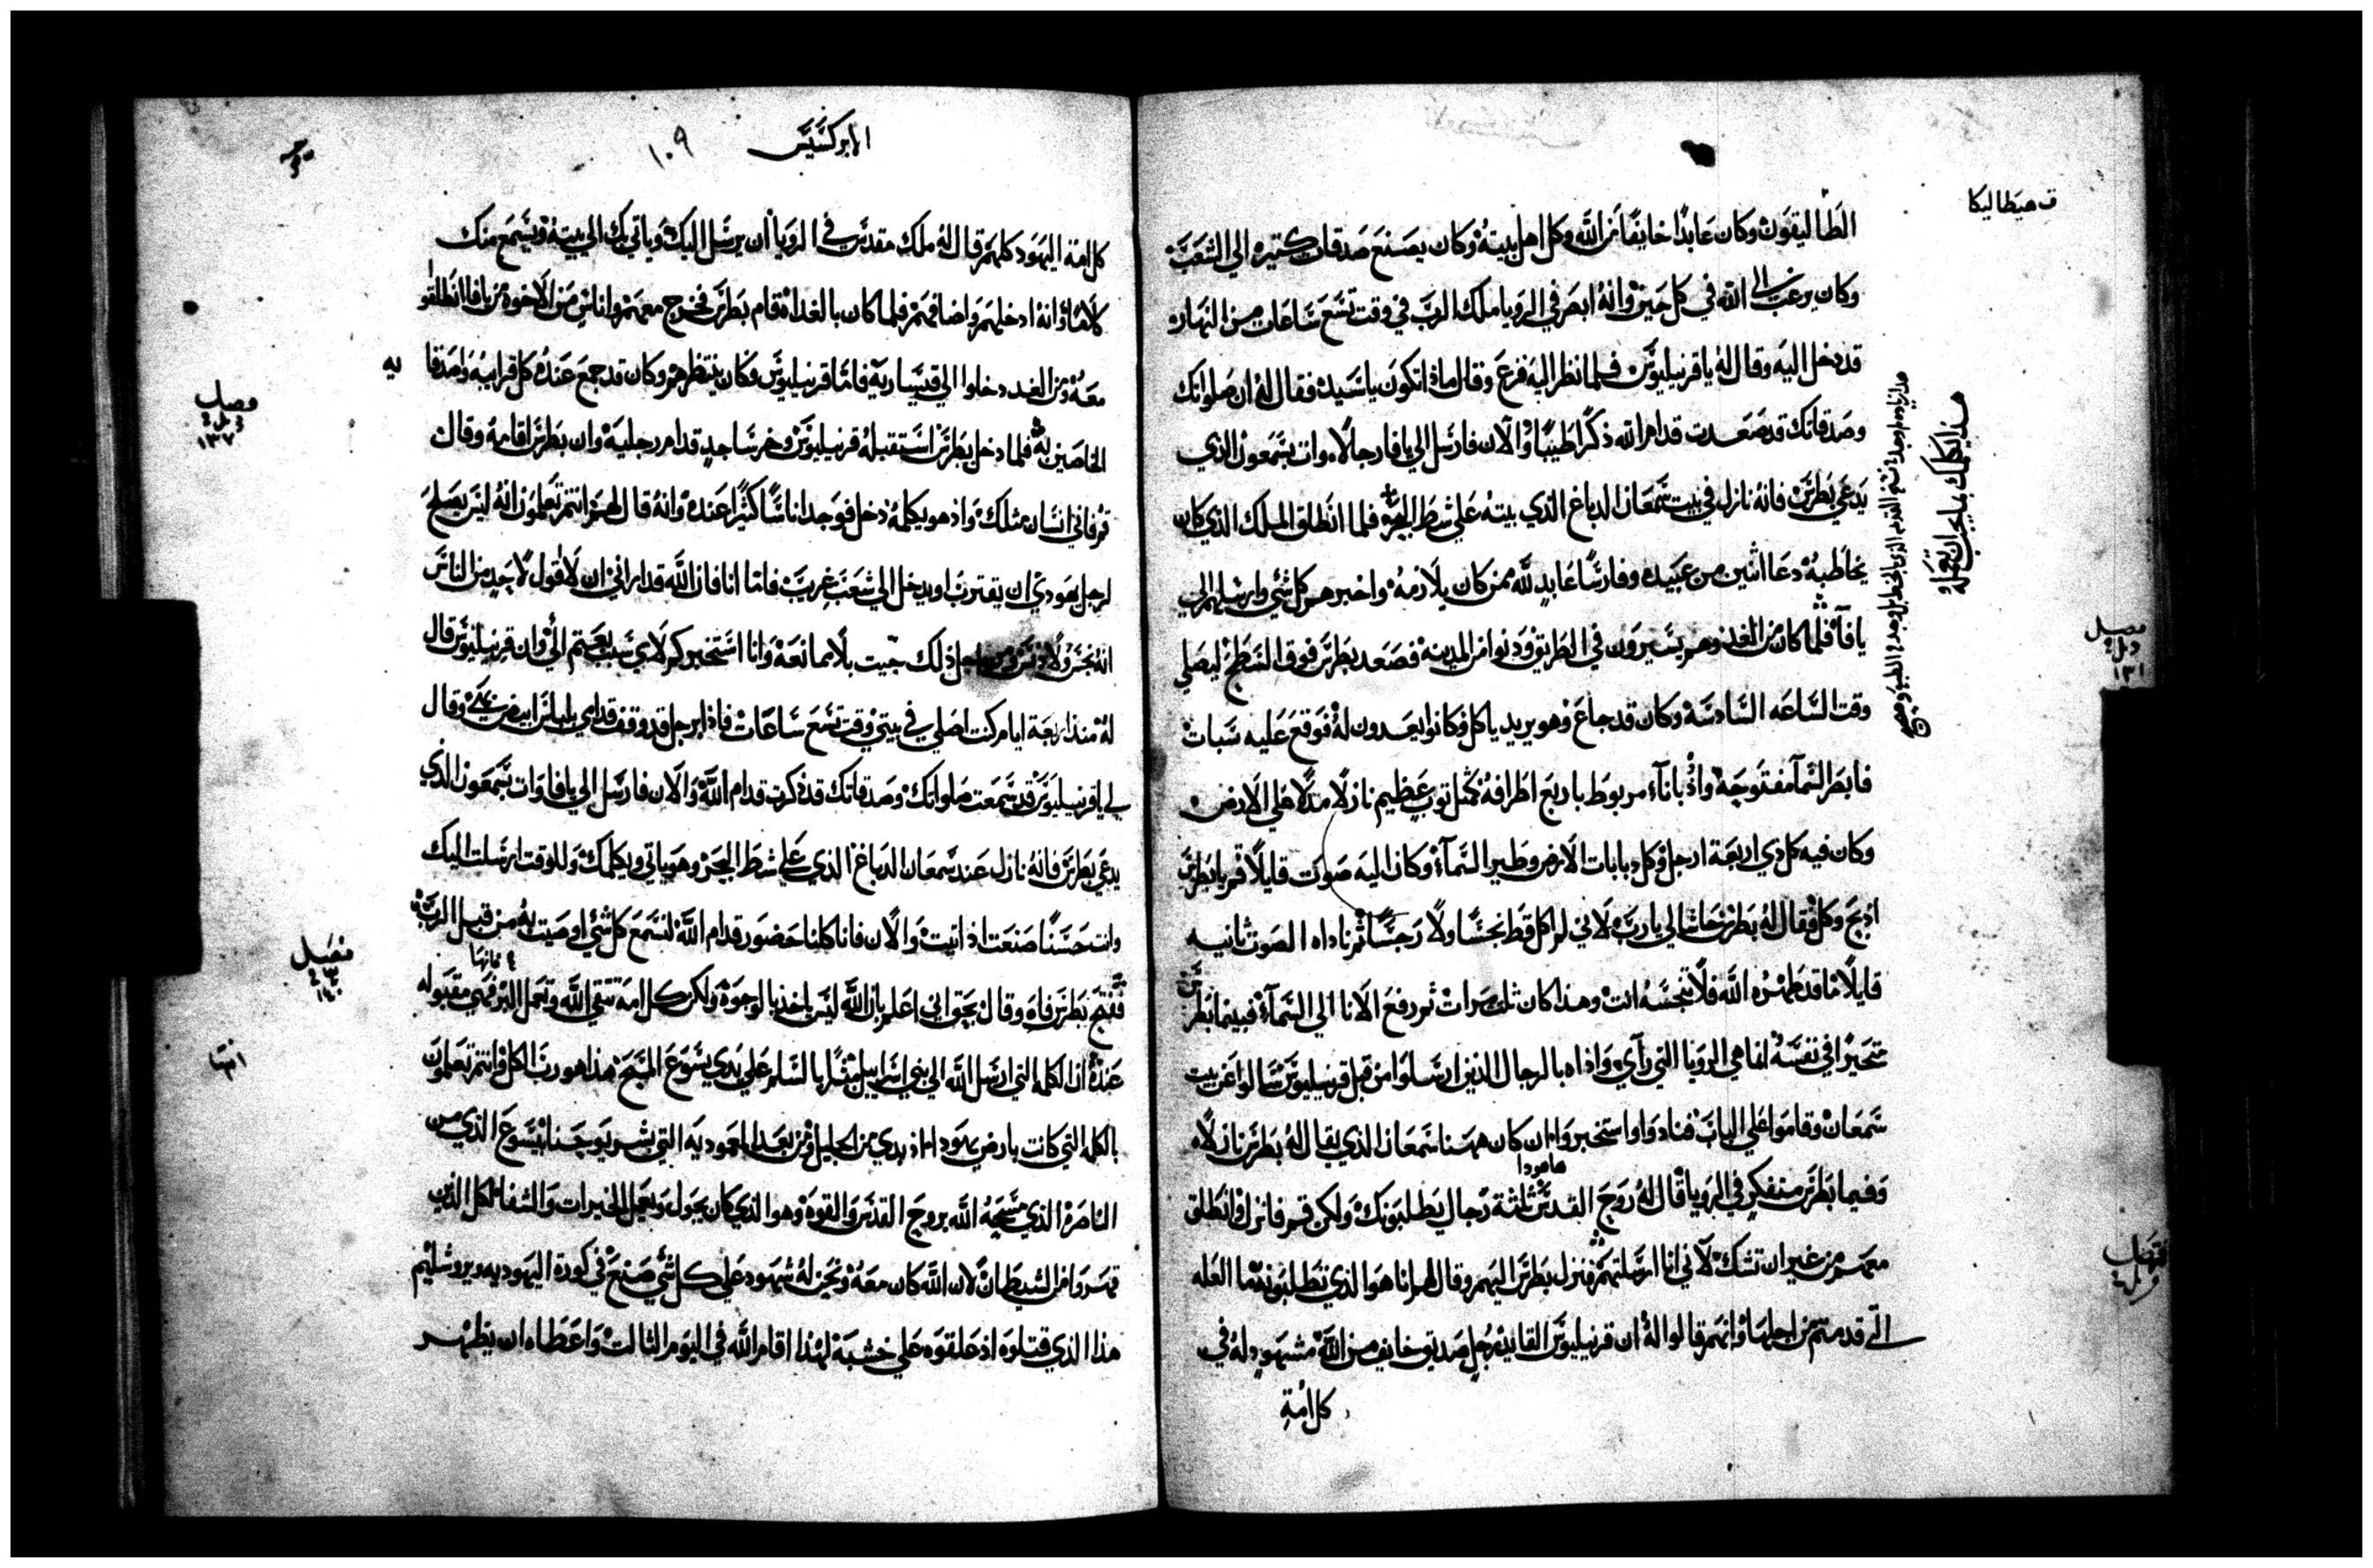 ف هيطاليكا
الطاليقون وكان عابدا خايفا من الله وكل اهل بيته وكان يصنع صدقات كتيره الي الشعب
وكان يرغب الي الله في كل حين وانه ابصر في الرويا ملك الرب في وقت تسع ساعات من النهار
قد دخل اليه وقال له يا قرنيليوس فلما نظر اليه فزع وقال ماذا تكون يا سيد فقال له ان صلواتك
وصدقاتك قد صعدت قدام الله ذكرا طيبا والآن فارسل الي يافا رجالا وات بشمعون الذي
يدعي بطرس فانه نازل في بيت شمعان الدباغ الذي بيته علي شط البحر فلما انطلق الملك الذي كان
يخاطبه دعا اثنين من عبيده وفارسا عابد لله ممن كان يلازمه واخبرهم كل شي وارسلهم الي
يافا فلما كان من الغد وهم يسيرون في الطريق ودنوا من المدينه فصعد بطرس فوق السطح ليصلي
وقت الساعه السادسة وكان قد جاع وهو يريد ياكل فكانوا يعدون له فوقع عليه سبات
فابصر السما مفتوحة واذ باناء مربوط باربع اطرافه كمثل توب عظيم نازلا مدلا علي الارض
وكان فيه كل دي اربعة ارجل وكل دبابات الارض وطير السماء وكان اليه صوت قايلا قم يا بطرس
اذبح وكل فقال له بطرس حاشا لي يا رب لاني لم اكل قط نجسا ولا رجسا ثم ناداه الصوت ثانيه
قايلا ما قد طهره الله فلا تنجسه انت وهذا كان ثلث مرات ثم رفع الانا الي السماء فبينما بطرس
متحيرا في نفسه لما هي الرويا التي رآي واذاه بالرجال الذين ارسلوا من قبل قرنيليوس سالوا عن بيت
شمعان وقاموا علي الباب فنادوا واستخبروا ان كان ههنا شمعان الذي يقال له بطرس نازلاه
وفيما بطرس متفكر في الرويا قال له روح القدس ثلثة رجال يطلبونك ولكن قم فانزل وانطلق
معهم من غير ان تشك لاني انا ارسلتهم فنزل بطرس اليهم وقال لهم انا هو الذي تطلبونه ما العله
التي قدمتم من اجلها وانهم قالوا له ان قرنيليوس القايد رجل صديق خايف من الله مشهود له في
كل امة
هذا يكلمك بما يجب ان تعمله
فصل
١٣١
فصل
الابركسيس
١٠٩
كل امة اليهود كلهم قال له ملك مقدس في الرويا ان يرسل اليك وياتي بك الي بيته ويسمع منك
كلاما وانه ادخلهم واضافهم فلما كان بالغداة قام بطرس فخرج معهم واناس من الاخوه من يافا انطلقو
معه ومن الغد دخلوا الي قيسارية فاما قرنيليوس فكان ينتظرهم وكان قد جمع عنده كل قرايبه واصدقا
يه
الخاصين به فلما دخل بطرس استقبله قرنيليوس وخر ساجد قدام رجليه وان بطرس اقامه وقال
قم فاني انسان مثلك واذ هو يكلمه دخل فوجد اناسا كثيرا عنده وانه قال لهم انتم تعلمون انه ليس يصلح
لرجل يهودي ان يقترب او يدخل الي شعب غريب فاما انا فان الله قد اراني ان لا اقول لاحد من الناس
انه نجس ولا دنس ومن اجل ذلك جيت بلا ممانعة وانا استخبركم لاي سبب بعتم الي وان قرنيليوس قال
له منذ اربعة ايام كنت اصلي في بيتي وقت تسع ساعات فاذا برجل قد وقف قدامي بلباس ابيض وقال
لي يا قرنيليوس قد سمعت صلواتك وصدقاتك قد ذكرت قدام الله والآن فارسل الي يافا وات بشمعون الذي
يدعي بطرس فانه نازل عند سمعان الدباغ الذي علي شط البحر وهو ياتي ويكلمك وللوقت ارسلت اليك
وانت حسنا صنعت اذ اتيت والآن فانا كلنا حضور قدام الله لنسمع كل شي اوصيت به من قبل الرب
ففتح بطرس فاه وقال بحق اني اعلم بان الله ليس ياخذ بالوجوه ولكن كل امة تتقي الله وتعمل البر فهي مقبوله
عنده ان الكلمه التي ارسل الله الي بني اسراييل مبشرا بالسلام علي يدي يسوع المسيح هذا هو رب الكل وانتم تعلمون
بالكلمه التي كانت بارض يهودا اذ بدي من الجليل من بعد المعموديه التي بشر يوحنا بيسوع الذي من
الناصرة الذي مسحه الله بروح القدس والقوه وهو الذي كان يجول ويعمل الخيرات والشفا لكل الذين
قهروا من الشيطان لان الله كان معه ونحن له شهود علي كل شي صنع في كورة اليهوديه ويروشليم
هذا الذي قتلوه اذ علقوه علي خشبة لهذا اقام الله في اليوم الثالث واعطاه ان يظهر
فصل
١٣٧
فصل
١٤٠